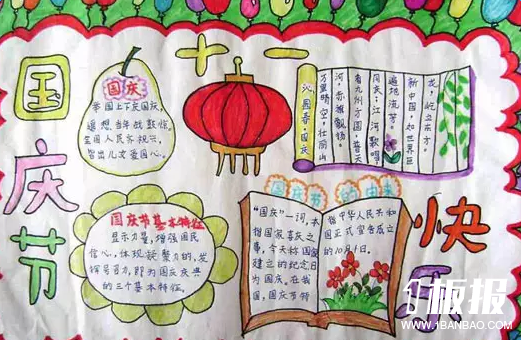 国庆节
十一
快乐
国庆
举国上下庆国庆,
遥想当年战鼓惊。
全国人民齐祝兴,
皆出儿女爱国心。
沁园春·国庆
万里晴空,壮丽山
河,赤旗飘扬。
看九州方圆,普天
同庆;江河歌唱
遍地流芳。
新中国,如世界巨
龙,屹立东方。
国庆节基本特征
显示力量,增强国民
信心,体现凝聚力,发
挥号召力,即为国庆庆典
的三个基本特征。
国庆节的由来
“国庆”一词,本
指国家喜庆之
事,今天称国家
建立的纪念日
为国庆。在我
国,国庆节特
指中华人民共和
国正式宣告成立
的10月1日。
板报
WWW.1BANBAO.COM